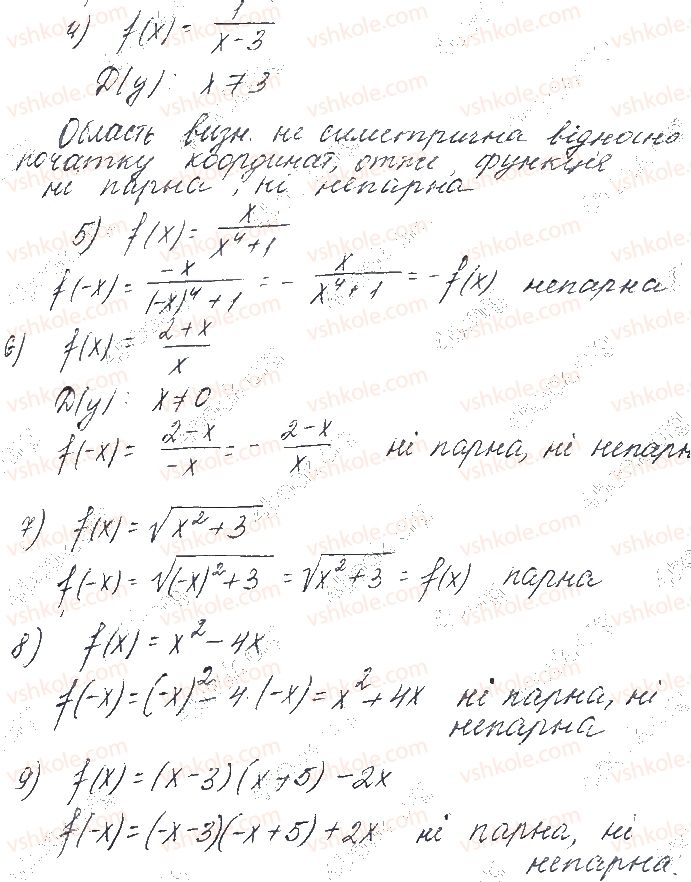 4) f(x) = 1/(x-3)
Д(y): x ≠ 3
Область визн. не симетрична відносно
початку координат, отже, функція
ні парна, ні непарна
5) f(x) = x/(x⁴+1)
f(-x) = -x/((-x)⁴+1) = - x/(x⁴+1) = -f(x) непарна
6) f(x) = (2+x)/x
Д(y): x ≠ 0
f(-x) = (2-x)/(-x) = - (2-x)/x ні парна, ні непарн
7) f(x) = √(x²+3)
f(-x) = √((-x)²+3) = √(x²+3) = f(x) парна
8) f(x) = x² - 4x
f(-x) = (-x)² - 4·(-x) = x² + 4x ні парна, ні
непарна
9) f(x) = (x-3)(x+5) - 2x
f(-x) = (-x-3)(-x+5) + 2x ні парна, ні
непарна.
vshkole.com